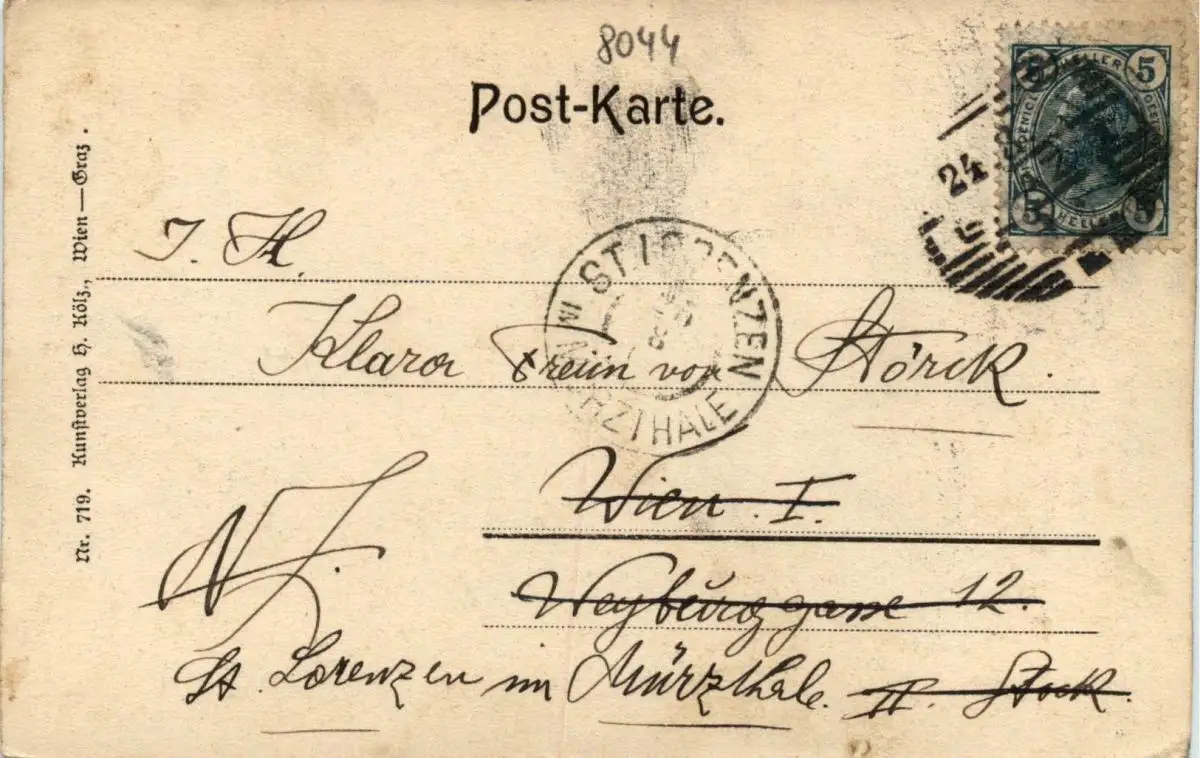 8044
Post-Karte.
5 HELLER 5
5 HELLER 5
24
ST. LORENZEN
IM MÜRZTHALE
J. H.
Klara Freiin von Störck.
Wien I.
Weyburggasse 12.
N.
St. Lorenzen im Mürzthale. II. Stock.
Nr. 719. Kunstverlag H. Kölz., Wien—Graz.